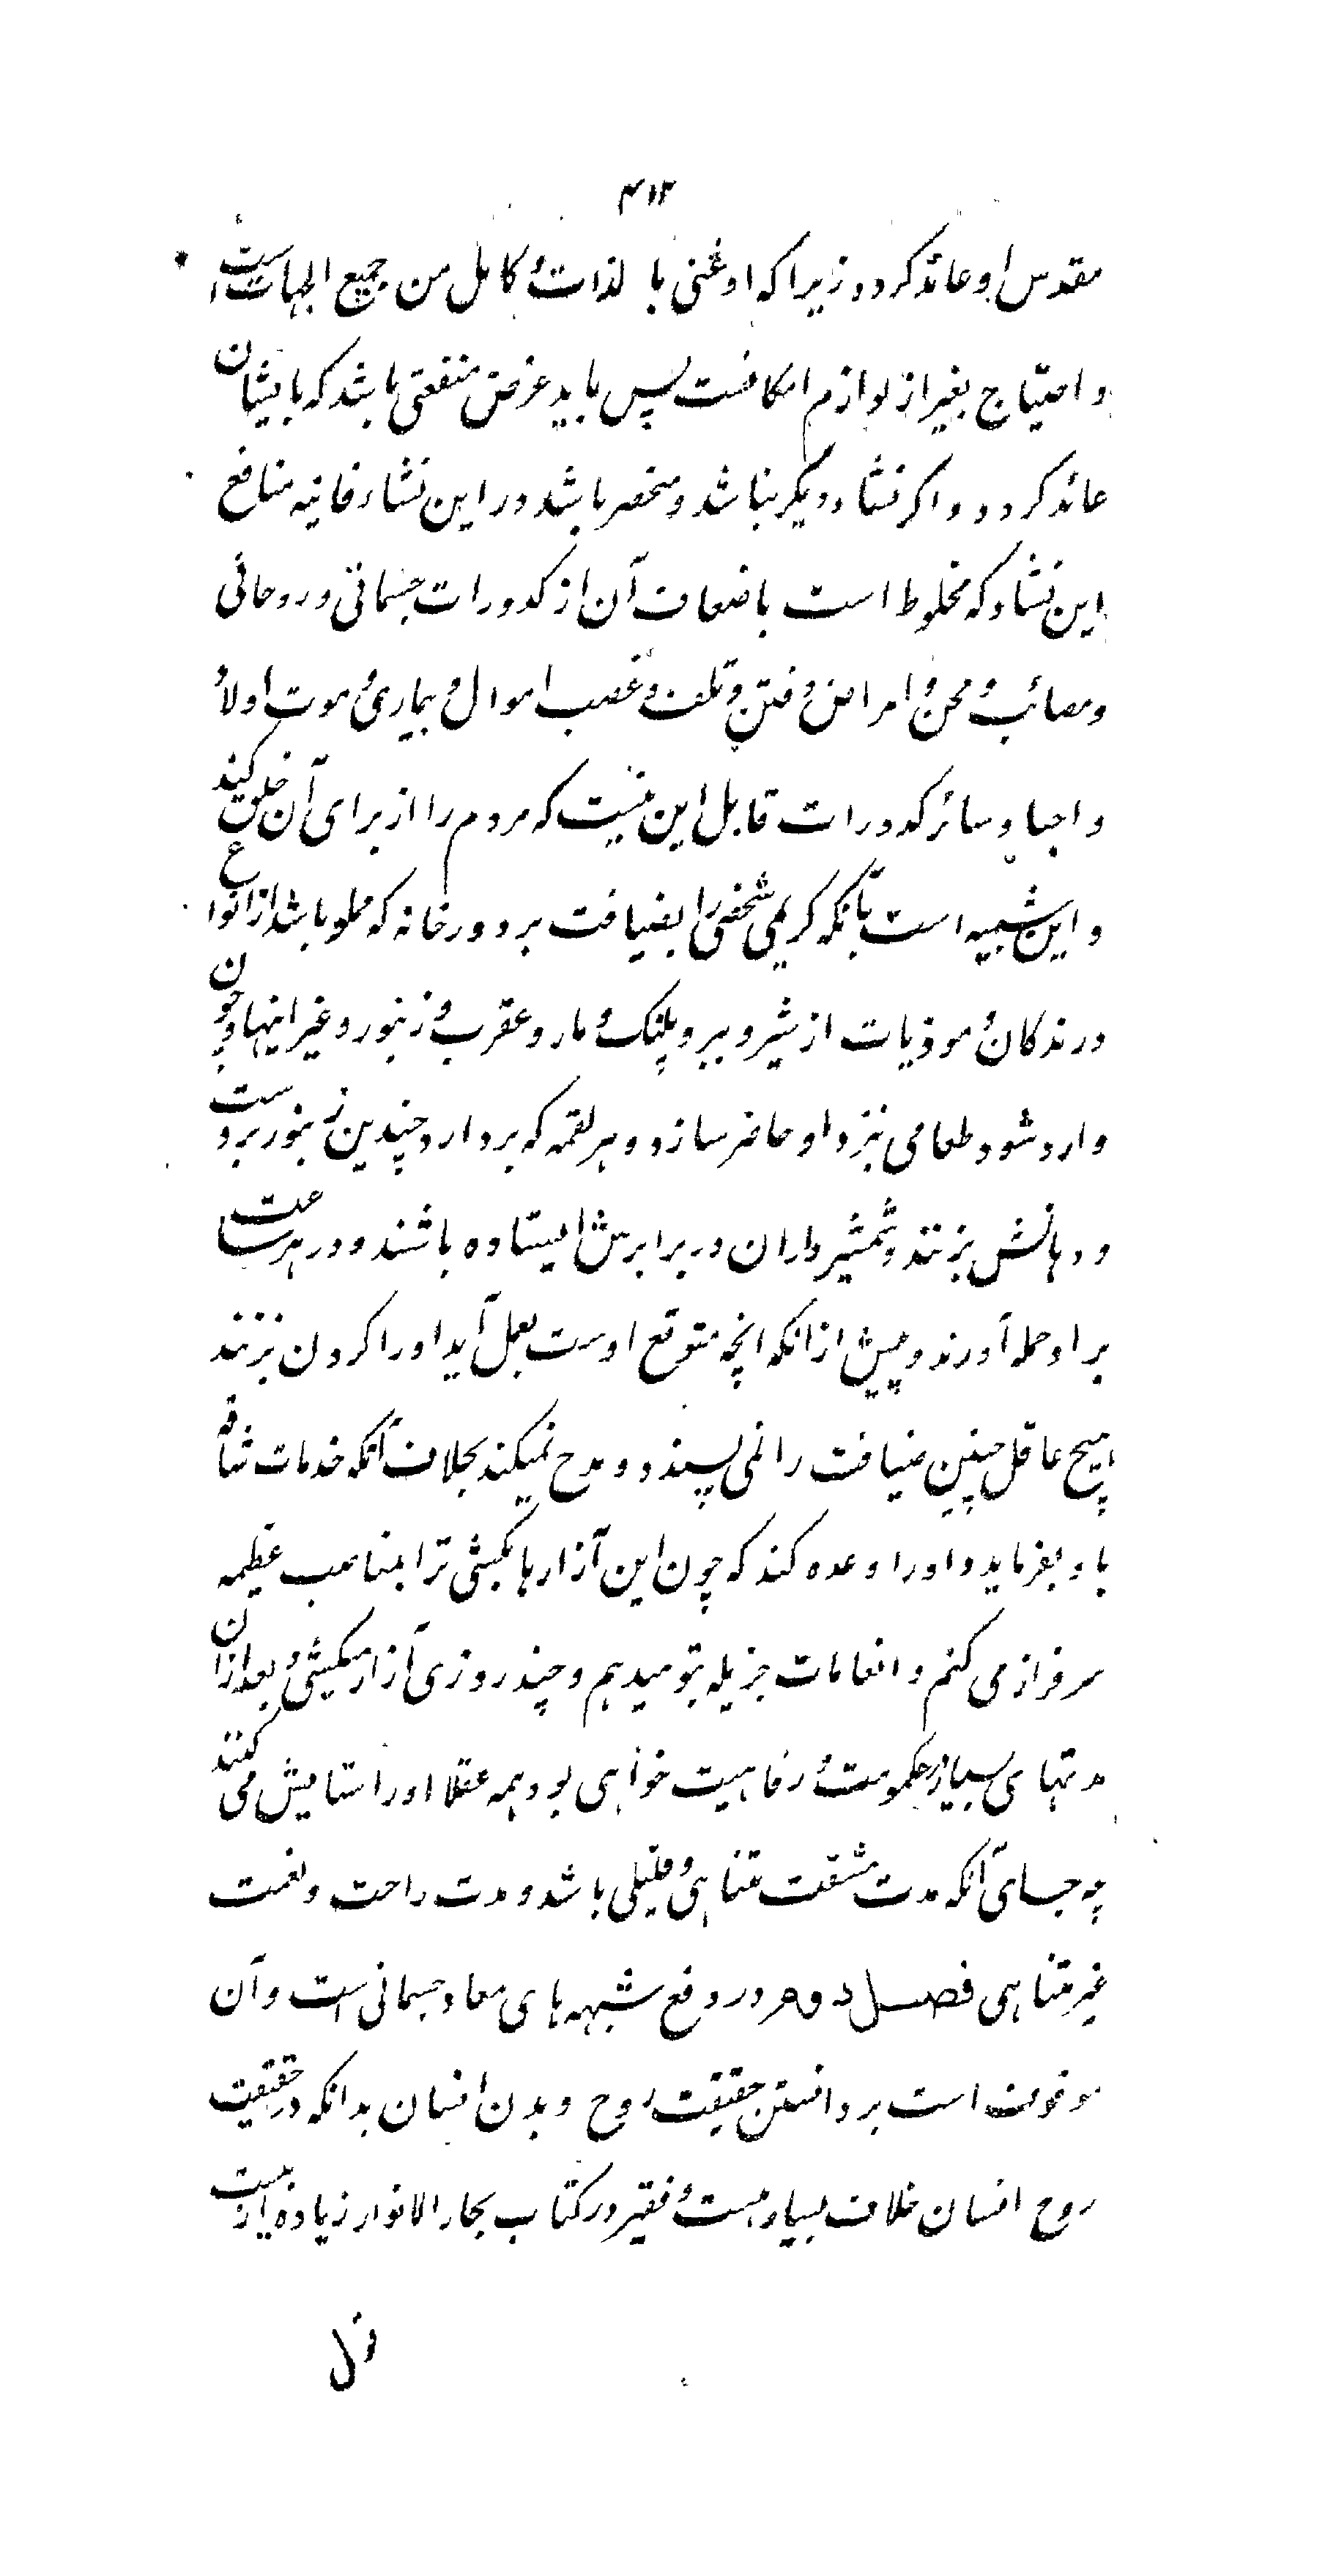 ۴۱۲
مقدس او عائد کردد زیرا که او غنی با لذات و کامل من جمیع الجهات است
و احتیاج بغیر از لوازم امکانست پس باید غرض منفعتی باشد که بایشان
عائد کردد و اکر نشاء دیکر نباشد و منحصر باشد در این نشاء فانیه منافع
این نشاء که مخلوط است باضعاف آن از کدورات جسمانی و روحانی
و مصائب و محن و امراض و فتن و تلف و غصب اموال و بیماری و موت اولاد
و احبا و سائر کدورات قابل این نیست که مردم را از برای آن خلق کند
و این شبیه است بآنکه کریمی شخصی را بضیافت برد در خانه که مملو باشد از انواع
درندکان و موذیات از شیر و ببر و پلنک و مار و عقرب و زنبور و غیر اینها و چون
وارد شود طعامی نزد او حاضر سازد و هر لقمه که بردارد چندین زنبور بر دست
و دهانش بزنند و شمشیرداران در برابرش ایستاده باشند و در هر ساعت
بر او حمله آورند و پیش از انکه انچه متوقع اوست بعمل آید او را کردن بزنند
هیچ عاقل چنین ضیافت را نمی پسندد و مدح نمیکند بخلاف آنکه خدمات شاقه
باو بفرماید و او را وعده کند که چون این آزارها بکشی ترا بمناصب عظیمه
سرفراز می کنم و انعامات جزیله بتو میدهم و چند روزی آزار میکشی و بعد از ان
مدتهای بسیار در حکومت و رفاهیت خواهی بود همه عقلا او را ستایش می کنند
چه جسای آنکه مدت مشقت متناهی و قلیلی باشد و مدت راحت و نعمت
غیر متناهی فصل دوم در دفع شبهه های معاد جسمانی است و آن
موقوف است بر دانستن حقیقت روح و بدن انسان بدانکه در حقیقت
روح انسان خلاف بسیار هست و فقیر در کتاب بحار الانوار زیاده از بیست